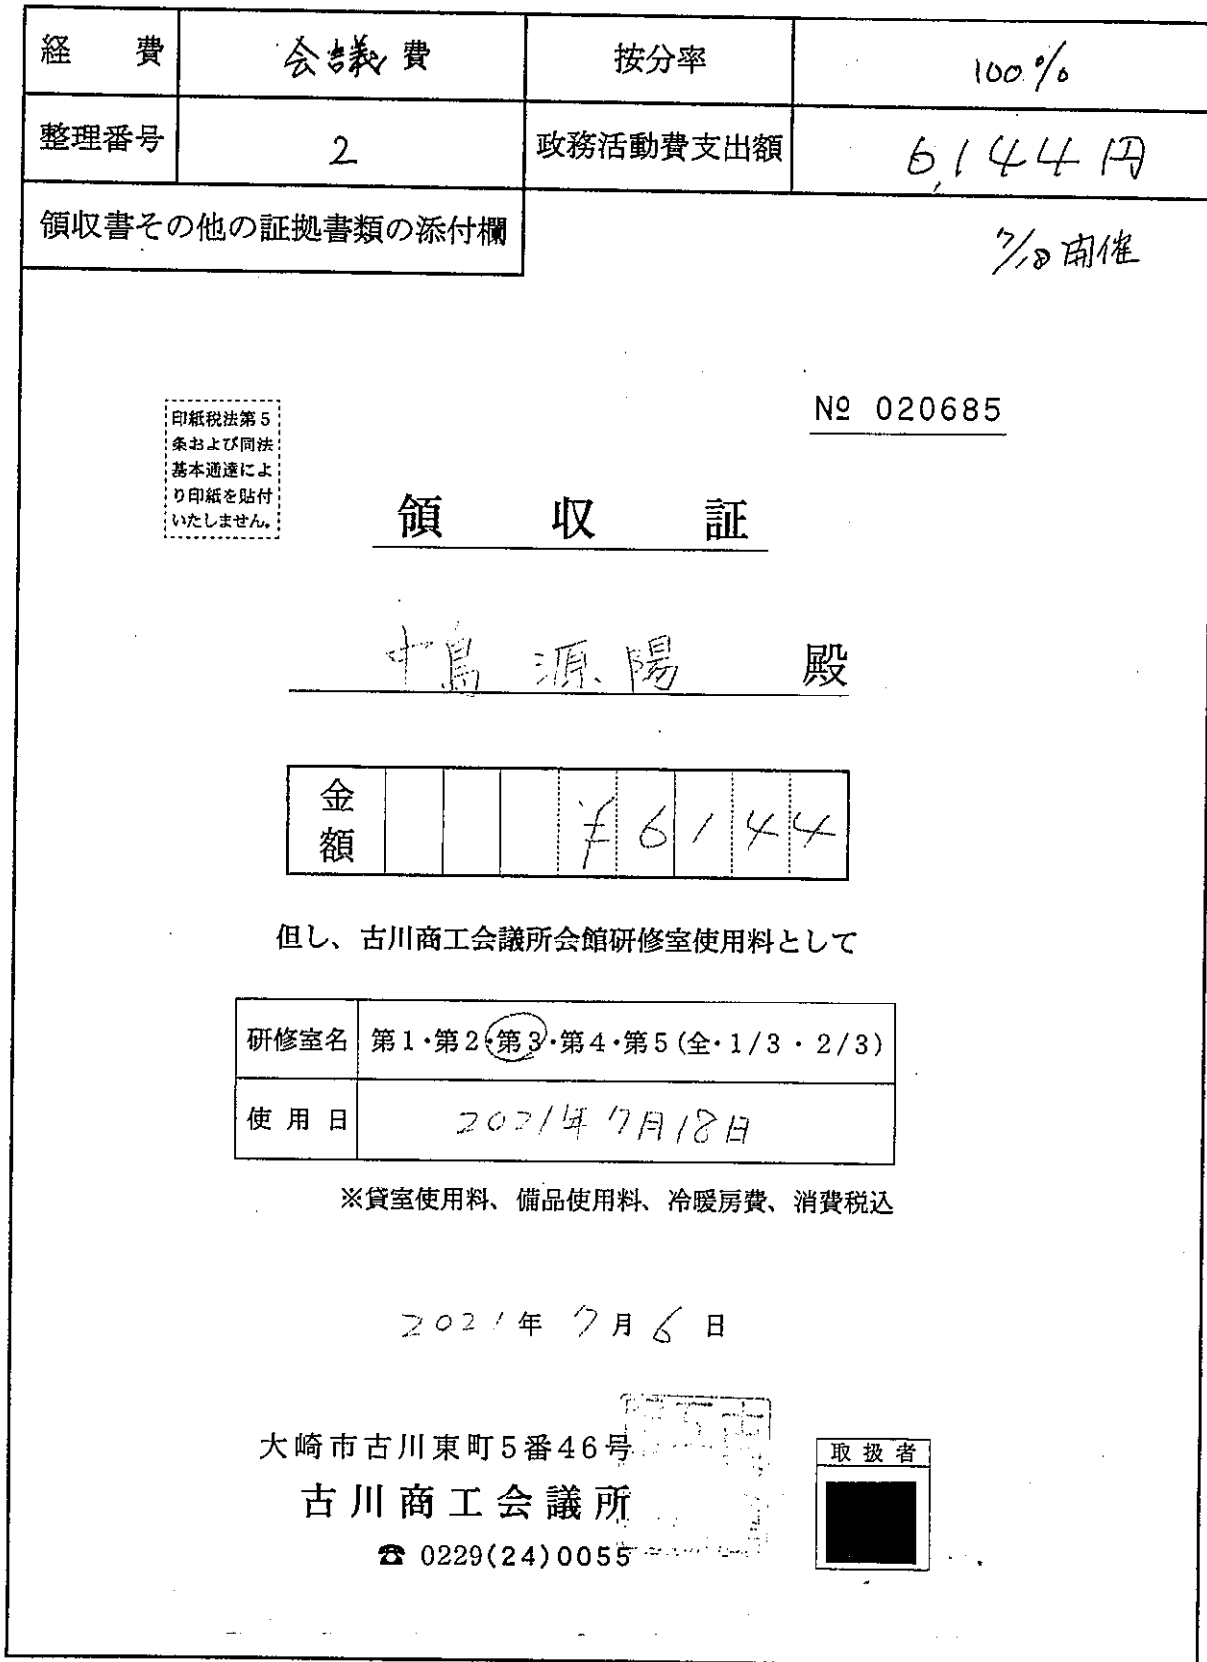 経 費 会議費 按分率 100%
整理番号 2 政務活動費支出額 6,144円
領収書その他の証拠書類の添付欄
7/18開催
印紙税法第5
条および同法
基本通達によ
り印紙を貼付
いたしません。
№ 020685
領 収 証
中島 源陽 殿
金額 ¥6144
但し、古川商工会議所会館研修室使用料として
研修室名 第1・第2・第3・第4・第5(全・1/3・2/3)
使用日 2021年7月18日
※貸室使用料、備品使用料、冷暖房費、消費税込
2021年 7月 6日
大崎市古川東町5番46号
古川商工会議所
☎ 0229(24)0055
取扱者